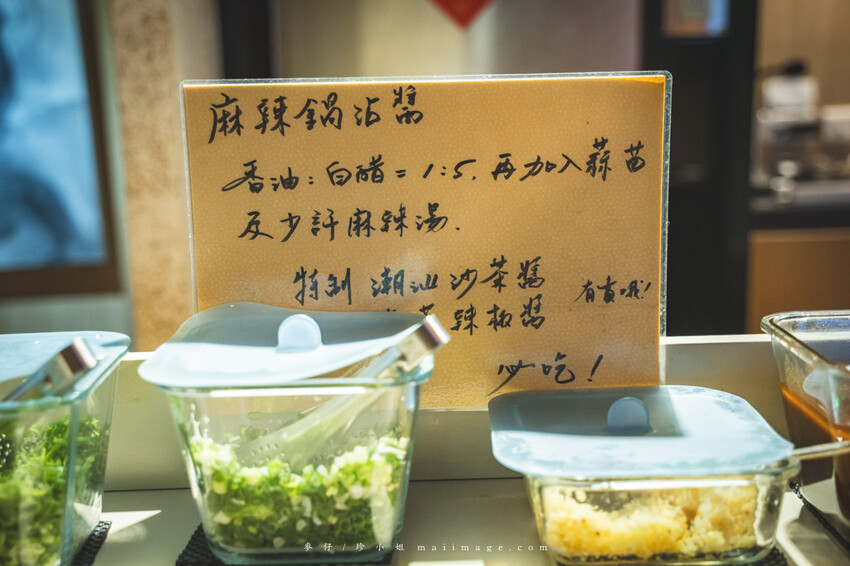 麻辣鍋沾醬
香油：白醋＝1:5. 再加入蒜苗
及少許麻辣湯.
特制 潮汕沙茶醬
有賣哦!
辣椒醬
必吃!
麥仔/珍小姐 maiimage.com